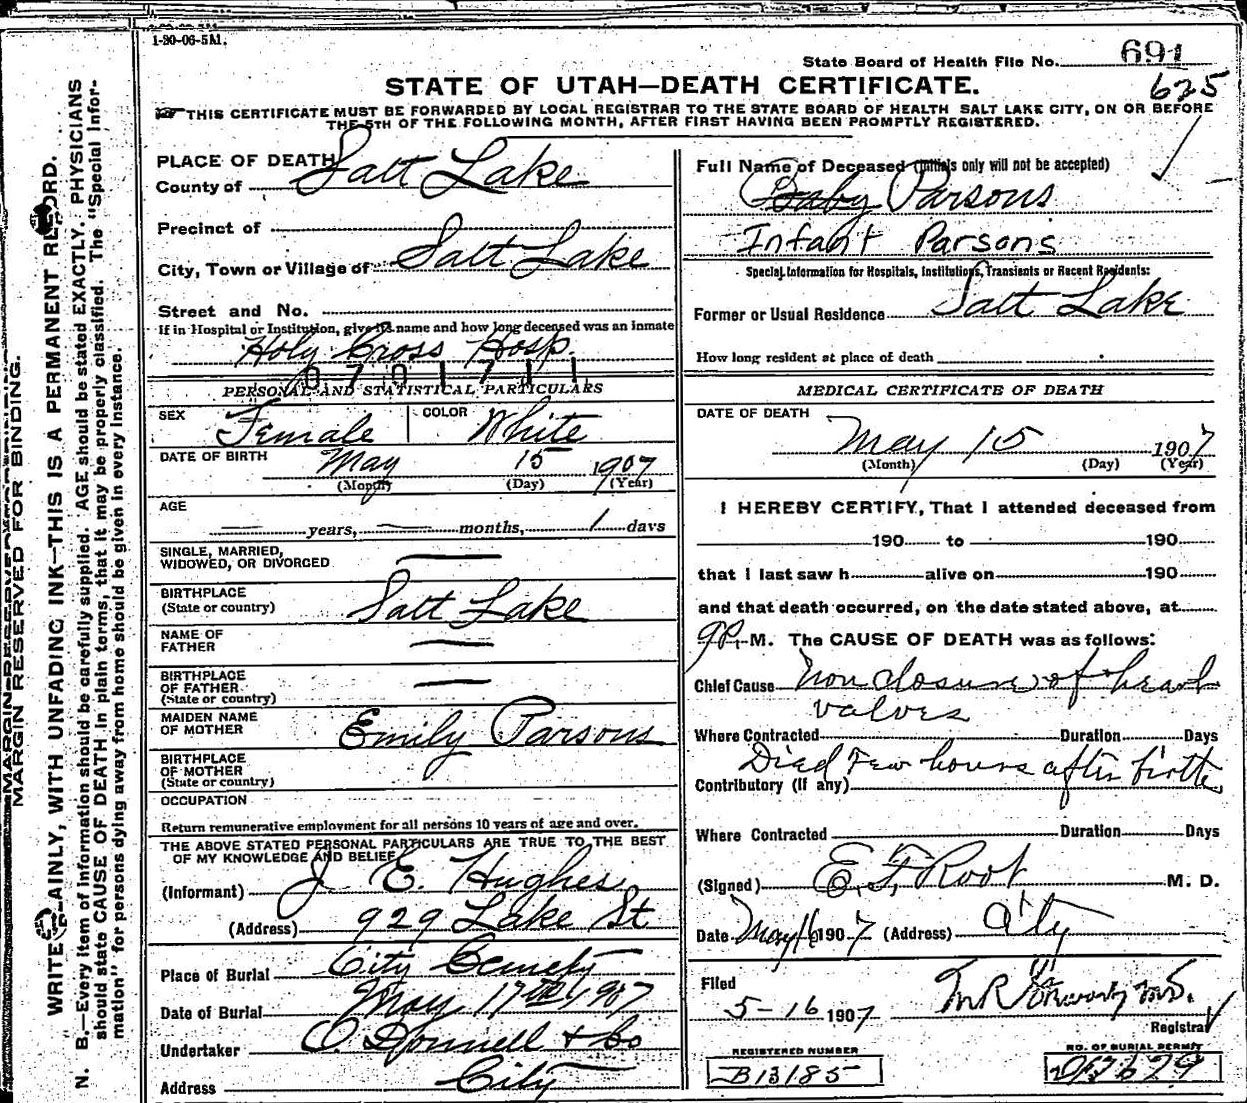 1-30-06-5M.
State Board of Health File No. 691
625
STATE OF UTAH—DEATH CERTIFICATE.
THIS CERTIFICATE MUST BE FORWARDED BY LOCAL REGISTRAR TO THE STATE BOARD OF HEALTH SALT LAKE CITY, ON OR BEFORE
THE 5TH OF THE FOLLOWING MONTH, AFTER FIRST HAVING BEEN PROMPTLY REGISTERED.
MARGIN RESERVED FOR BINDING.
WRITE PLAINLY, WITH UNFADING INK—THIS IS A PERMANENT RECORD.
N. B.—Every item of information should be carefully supplied. AGE should be stated EXACTLY. PHYSICIANS
should state CAUSE OF DEATH in plain terms, that it may be properly classified. The "Special Infor-
mation" for persons dying away from home should be given in every instance.
PLACE OF DEATH
County of Salt Lake
Precinct of
City, Town or Village of Salt Lake
Street and No.
If in Hospital or Institution, give its name and how long deceased was an inmate
Holy Cross Hosp.
0701711
PERSONAL AND STATISTICAL PARTICULARS
SEX Female COLOR White
DATE OF BIRTH May 15 1907
(Month) (Day) (Year)
AGE
— years, — months, 1 days
SINGLE, MARRIED,
WIDOWED, OR DIVORCED —
BIRTHPLACE
(State or country) Salt Lake
NAME OF
FATHER —
BIRTHPLACE
OF FATHER —
(State or country)
MAIDEN NAME
OF MOTHER Emily Parsons
BIRTHPLACE
OF MOTHER
(State or country)
OCCUPATION
Return remunerative employment for all persons 10 years of age and over.
THE ABOVE STATED PERSONAL PARTICULARS ARE TRUE TO THE BEST
OF MY KNOWLEDGE AND BELIEF
(Informant) J. E. Hughes
(Address) 929 Lake St
Place of Burial City Cemety
Date of Burial May 17th 1907
Undertaker O. Donnell & Co
Address City
Full Name of Deceased (Initials only will not be accepted)
Baby Parsons
Infant Parsons
Special Information for Hospitals, Institutions, Transients or Recent Residents:
Former or Usual Residence Salt Lake
How long resident at place of death
MEDICAL CERTIFICATE OF DEATH
DATE OF DEATH
May 15 1907
(Month) (Day) (Year)
I HEREBY CERTIFY, That I attended deceased from
190 to 190
that I last saw h alive on 190
and that death occurred, on the date stated above, at
9P. M. The CAUSE OF DEATH was as follows:
Chief Cause Non closure of heart
valves
Where Contracted Duration Days
Died Few hours after birth
Contributory (if any)
Where Contracted Duration Days
(Signed) E. F. Root M. D.
Date May 16 1907 (Address) City
Filed
5-16 1907
Registrar
REGISTERED NUMBER
B13185
NO. OF BURIAL PERMIT